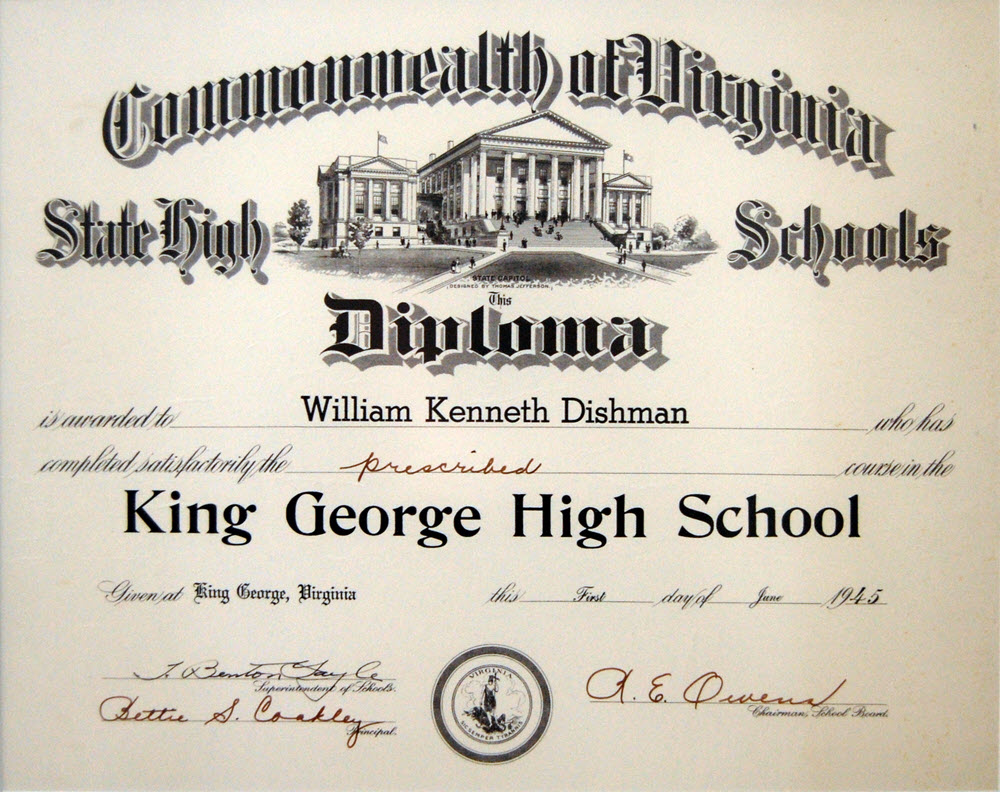 Commonwealth of Virginia
State High Schools
STATE CAPITOL
(DESIGNED BY THOMAS JEFFERSON)
This
Diploma
is awarded to William Kenneth Dishman who has
completed satisfactorily the prescribed course in the
King George High School
Given at King George, Virginia this First day of June 1945
T. Benton Gayle
Superintendent of Schools.
Bettie S. Coakley
Principal.
VIRGINIA
SIC SEMPER TYRANNIS
R. E. Owens
Chairman, School Board.